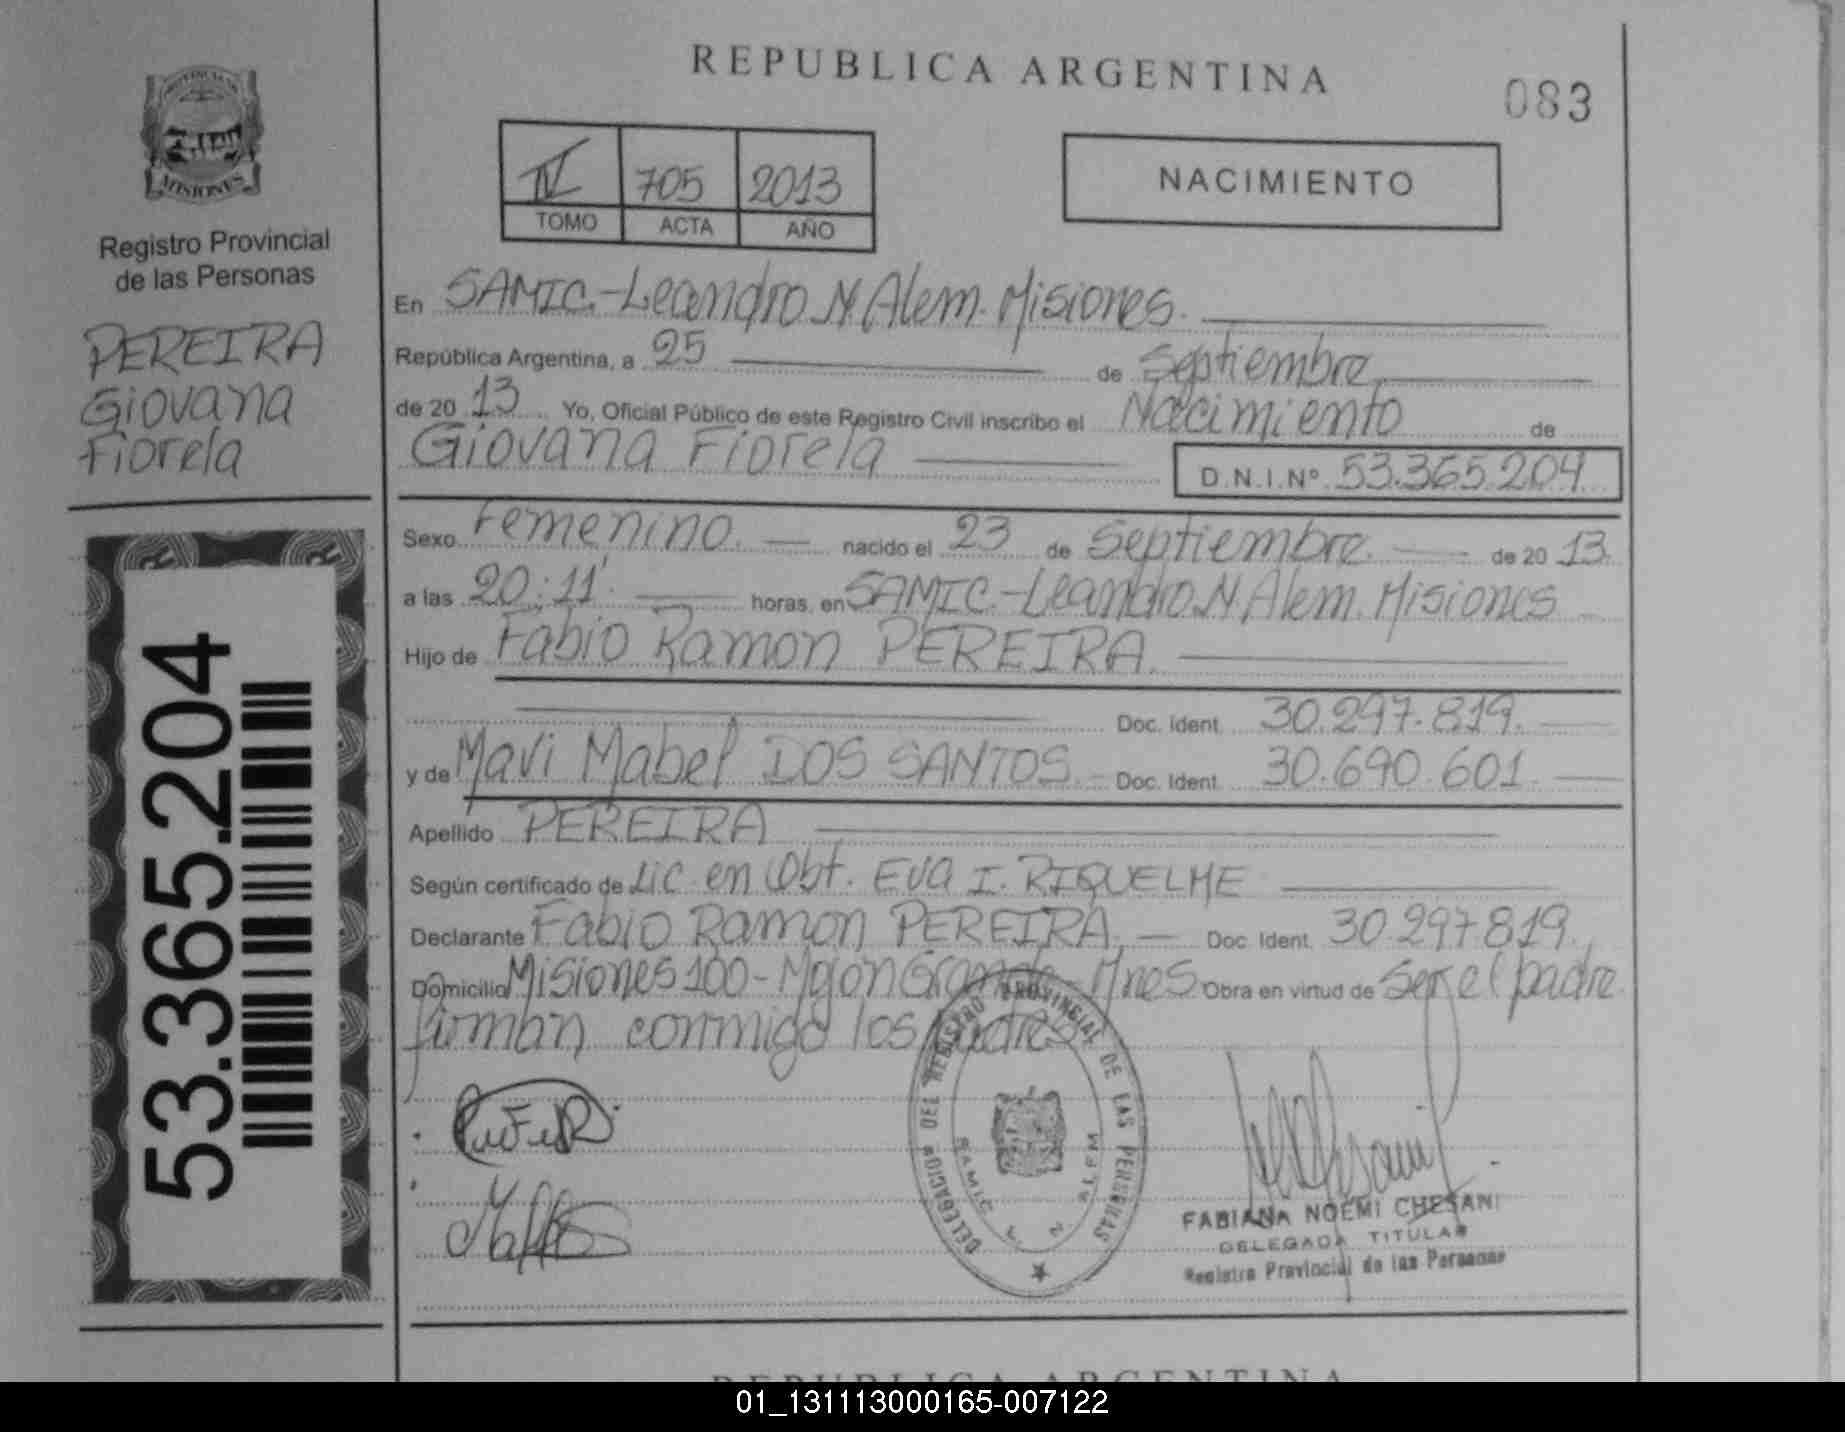 REPUBLICA ARGENTINA
083
MISIONES
Registro Provincial
de las Personas
PEREIRA
Giovana
Fiorela
53.365.204
IV 705 2013
TOMO ACTA AÑO
NACIMIENTO
En SAMIC.-Leandro N. Alem. Misiones.
República Argentina, a 25 de Septiembre
de 20 13 Yo, Oficial Público de este Registro Civil inscribo el Nacimiento de
Giovana Fiorela D.N.I.Nº 53.365.204
Sexo Femenino. nacido el 23 de Septiembre. de 20 13.
a las 20:11' horas, en SAMIC.-Leandro N. Alem. Misiones
Hijo de Fabio Ramon PEREIRA.
Doc. Ident. 30.297.819.
y de Mavi Mabel DOS SANTOS. Doc. Ident. 30.690.601.
Apellido PEREIRA
Según certificado de Lic en Obt. Eva I. RIQUELME
Declarante Fabio Ramon PEREIRA, Doc. Ident. 30297819.,
Domicilio Misiones 100-Mojon Grande-Mnes Obra en virtud de ser el padre.
firman conmigo los padres
DELEGACION DEL REGISTRO PROVINCIAL DE LAS PERSONAS
SAMIC L. N. ALEM
FABIANA NOEMI CHESANI
DELEGADA TITULAR
Registro Provincial de las Personas
REPUBLICA ARGENTINA
01_131113000165-007122